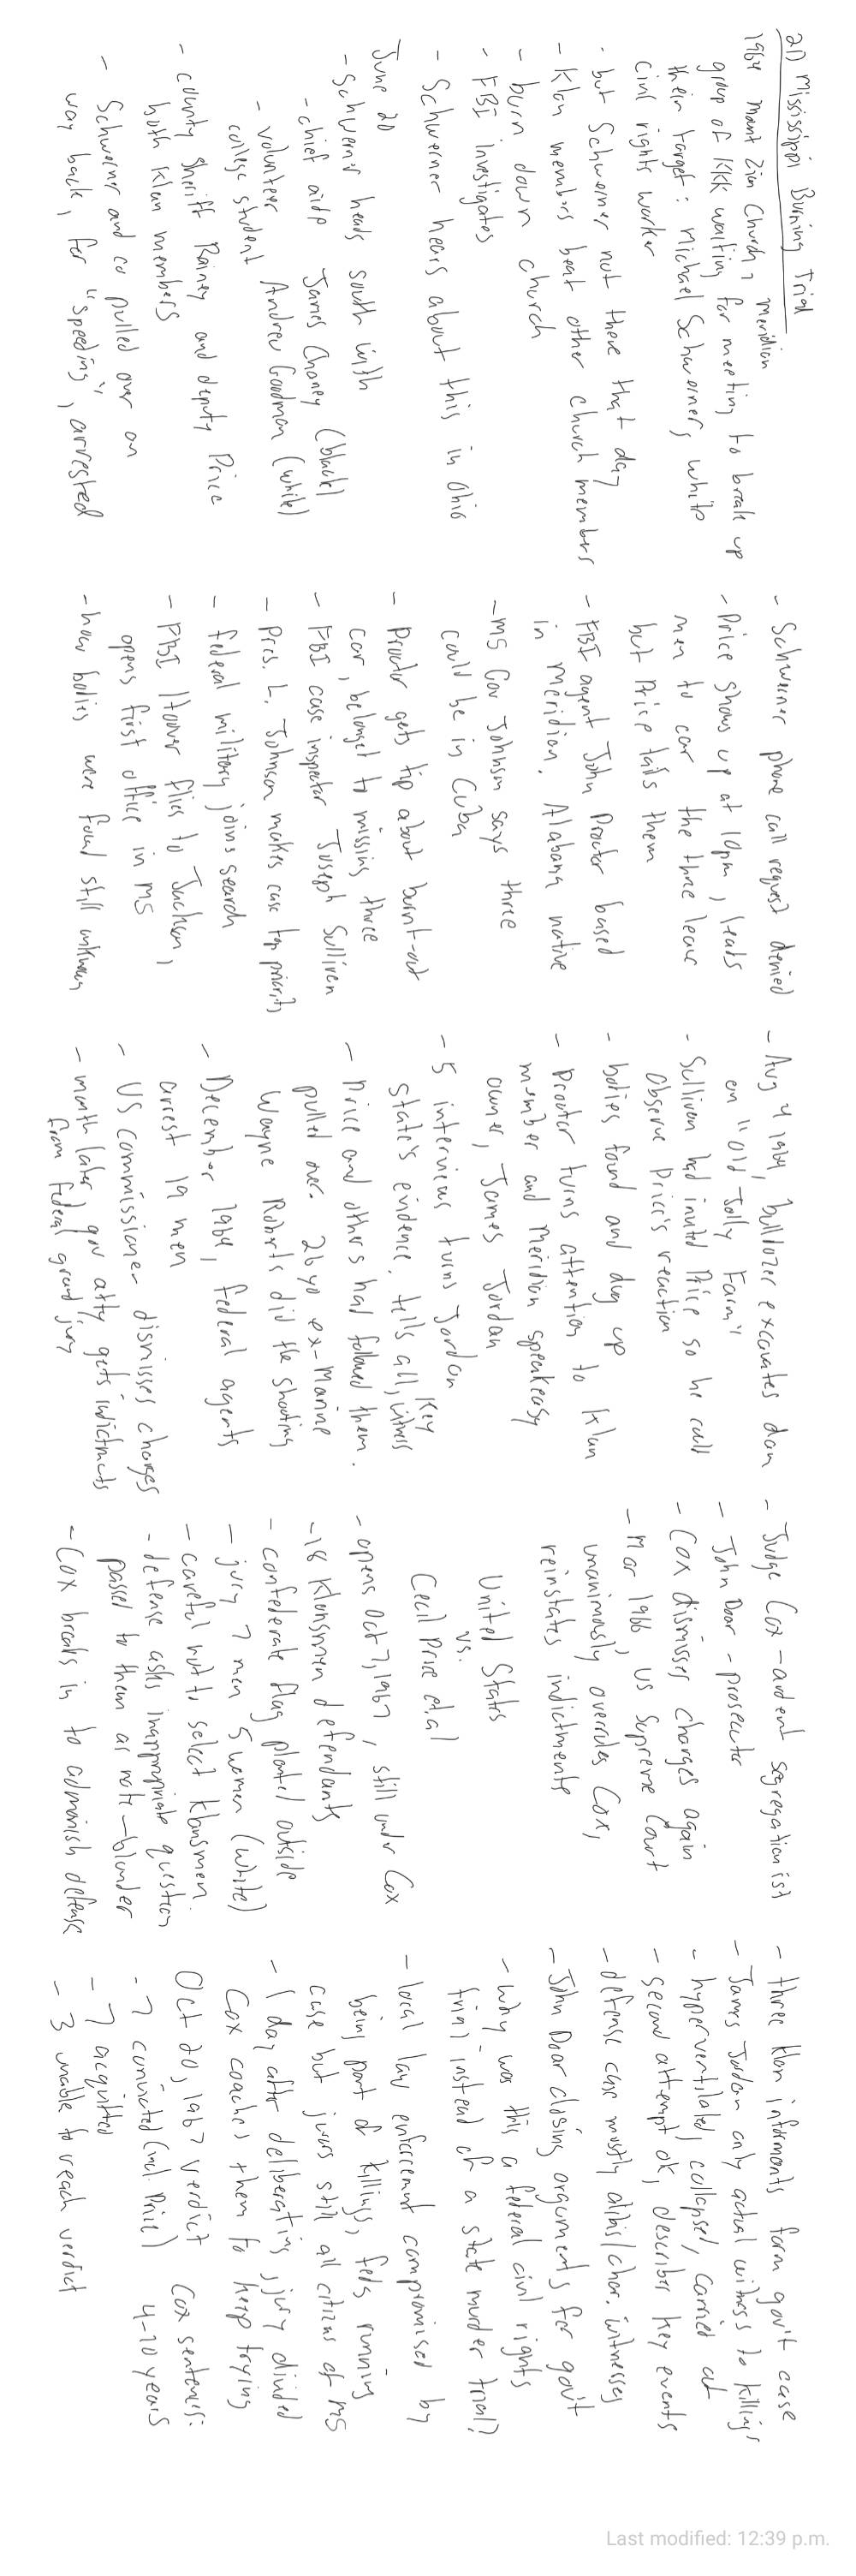 21) Mississippi Burning Trial
1964 Mount Zion Church, Meridian
group of KKK waiting for meeting to break up
their target: Michael Schwerner, white
civil rights worker
- but Schwerner not there that day
- Klan members beat other church members
- burn down church
- FBI investigates
- Schwerner hears about this in Ohio
June 20
- Schwerner heads south with
- chief aide James Chaney (black)
- volunteer Andrew Goodman (white)
college student
- county Sheriff Rainey and deputy Price
both Klan members
- Schwerner and co pulled over on
way back, for "speeding", arrested
- Schwerner phone call request denied
- Price shows up at 10pm, leads
men to car the three leave
but Price tails them
- FBI agent John Proctor based
in Meridian. Alabama native
- MS Gov Johnson says three
could be in Cuba
- Proctor gets tip about burnt-out
car, belonged to missing three
- FBI case inspector Joseph Sullivan
- Pres. L. Johnson makes case top priority
- federal military joins search
- FBI Hoover flies to Jackson,
opens first office in MS
- how bodies were found still unknown
- Aug 4 1964, bulldozer excavates dam
on "Old Jolly Farm"
- Sullivan had invited Price so he could
observe Price's reaction
- bodies found and dug up
- Proctor turns attention to Klan
member and Meridian speakeasy
owner, James Jordan
- 5 interviews turns Jordan
state's evidence. tells all, key witness
- Price and others had followed them.
pulled over. 26 yo ex-Marine
Wayne Roberts did the shooting
- December 1964, federal agents
arrest 19 men
- US commissioner dismisses charges
- month later, gov atty gets indictments
from federal grand jury
- Judge Cox - ardent segregationist
- John Doar - prosecutor
- Cox dismisses charges again
- Mar 1966, US Supreme Court
unanimously overrules Cox,
reinstates indictments
United States
vs.
Cecil Price et.al
- opens Oct 7, 1967, still under Cox
- 18 Klansmen defendants
- confederate flag planted outside
- jury 7 men 5 women (white)
- careful not to select Klansmen.
- defense asks inappropriate question
passed to them as note - blunder
- Cox breaks in to admonish defense
- three klan informants form gov't case
- James Jordan only actual witness to killings
- hyperventilated, collapsed, carried out
- second attempt ok, describes key events
- defense case mostly alibis/char. witnesses
- John Doar closing arguments for gov't
- why was this a federal civil rights
trial instead of a state murder trial?
- local law enforcement compromised by
being part of killings, feds running
case but jurors still all citizens of MS
- 1 day after deliberating, jury divided
Cox coaches them to keep trying
Oct 20, 1967 verdict
- 7 convicted (incl. Price)
- 7 acquitted
- 3 unable to reach verdict
Cox sentences:
4-10 years
Last modified: 12:39 p.m.